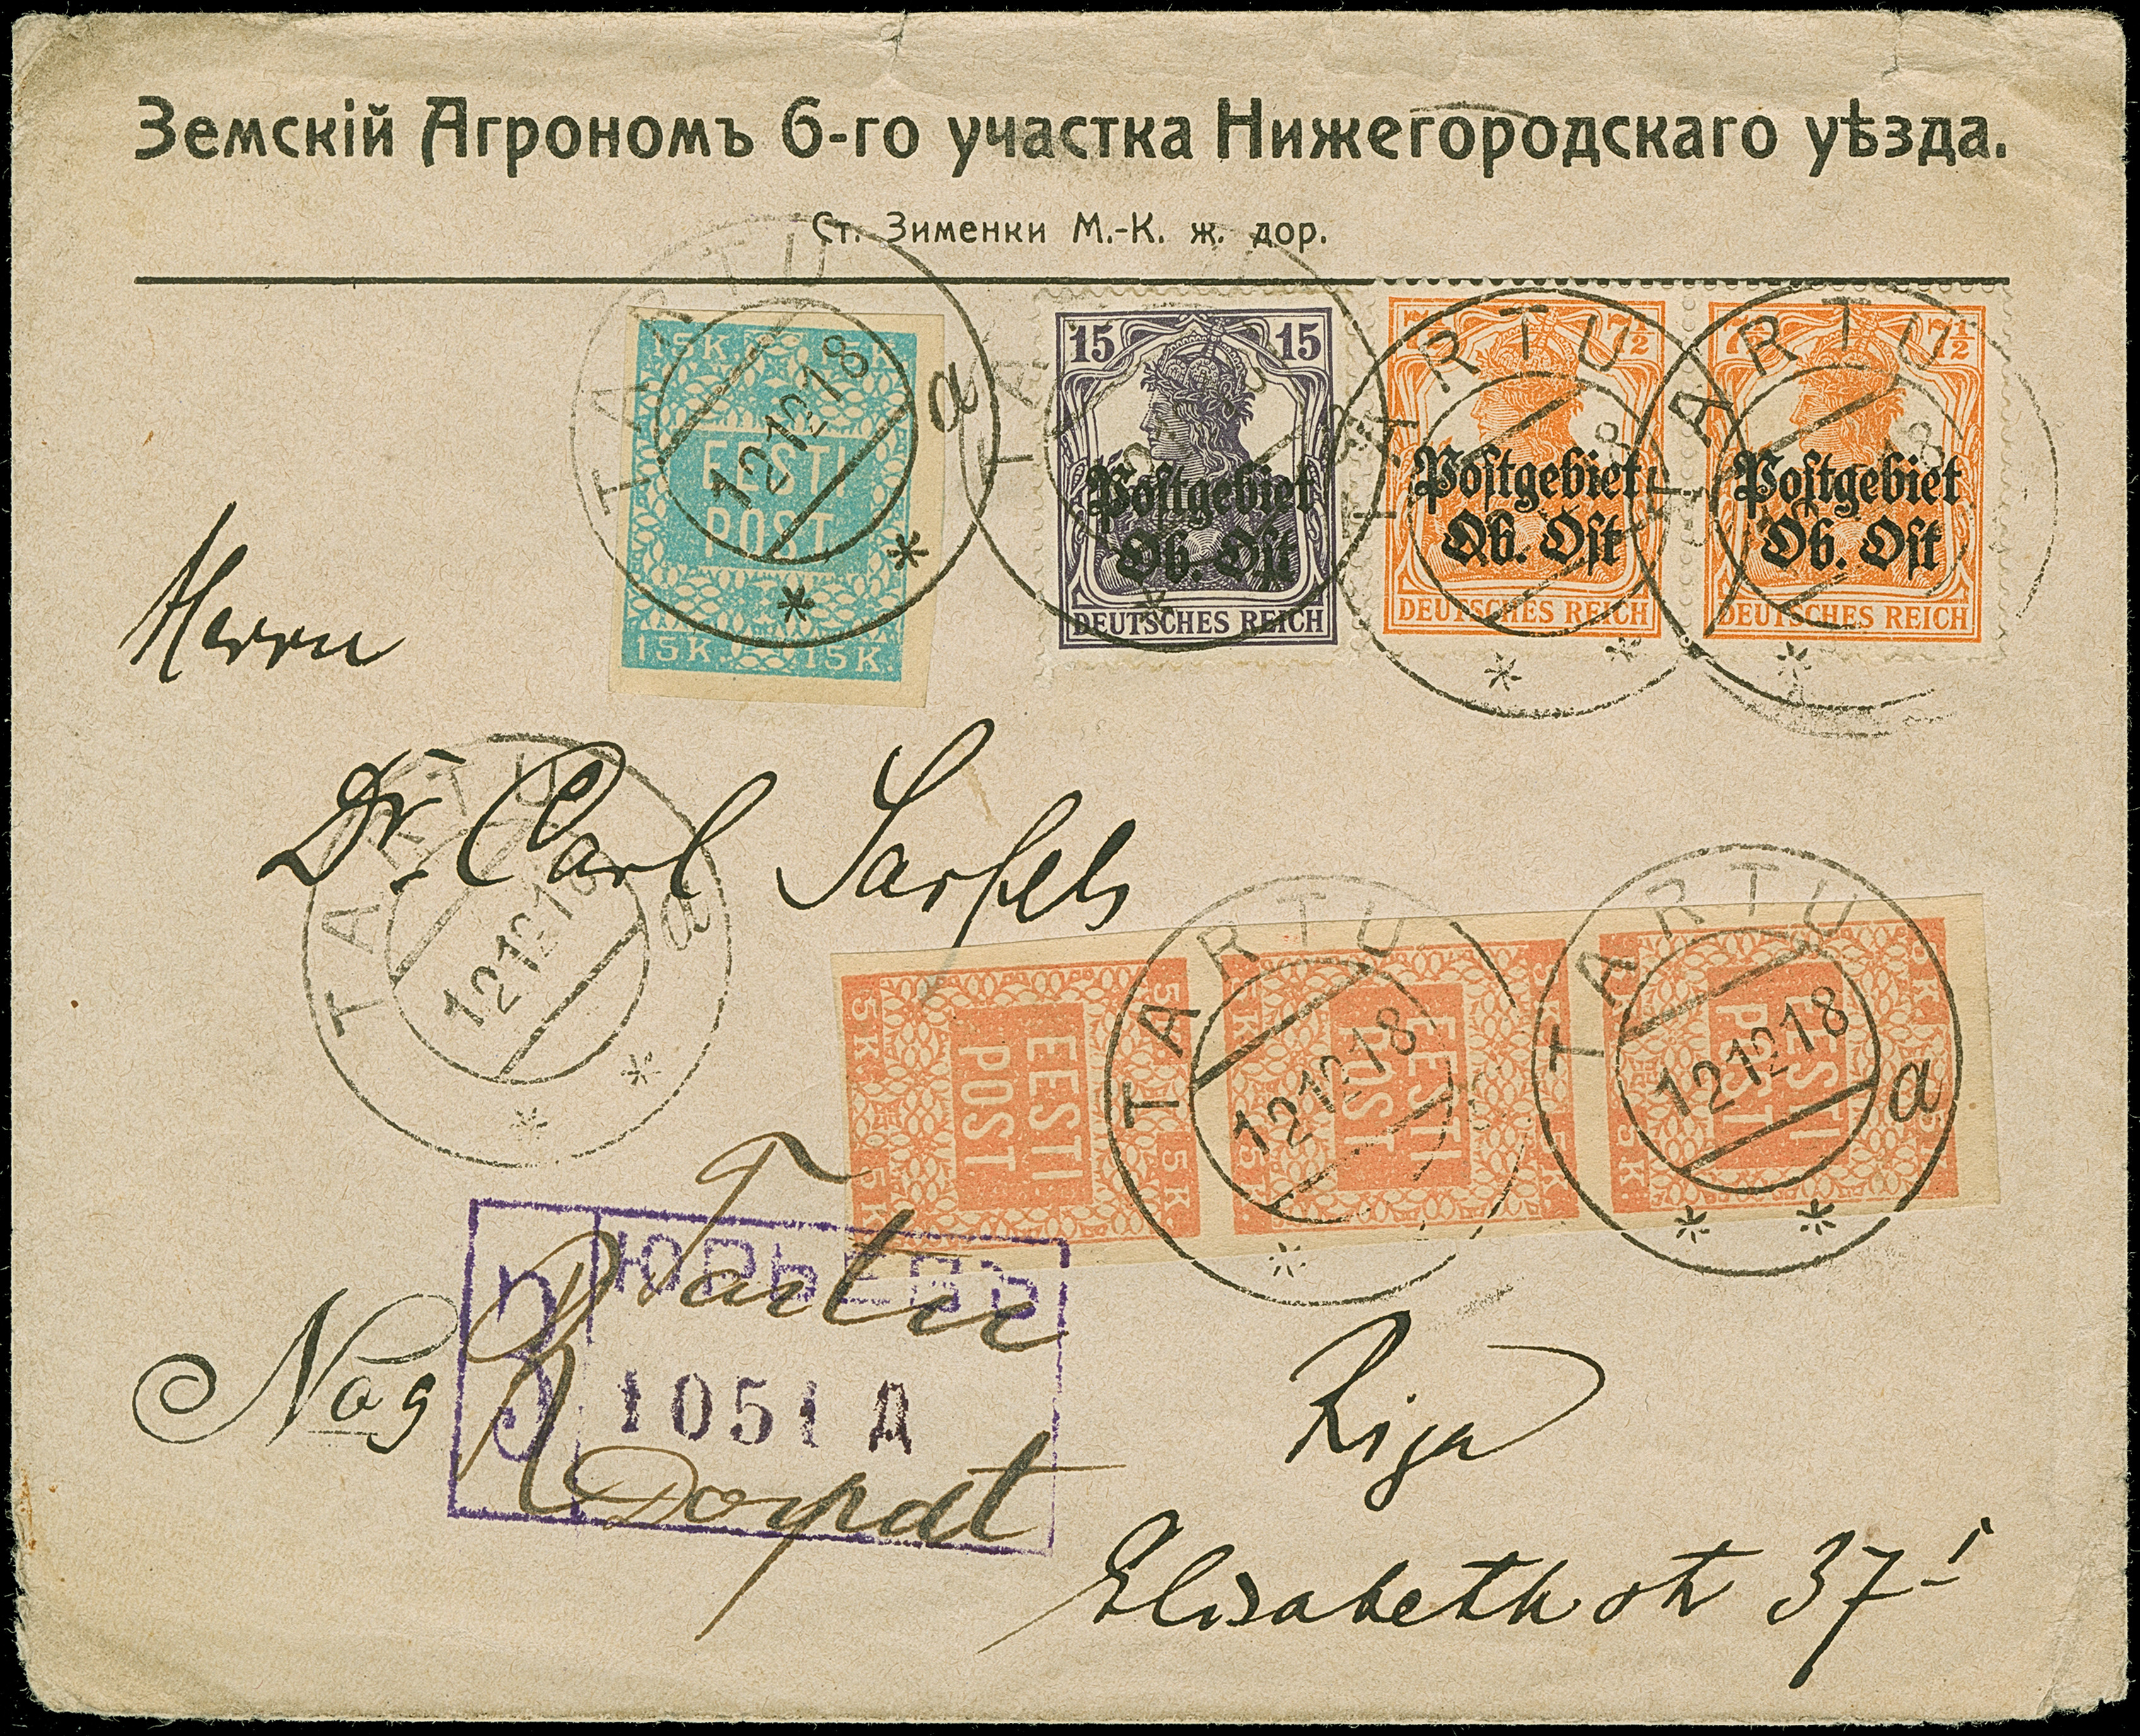 Земскій Агрономъ 6-го участка Нижегородскаго уѣзда.
Ст. Зименки М.-К. ж. дор.
15K. 15K.
EESTI
POST
15K. 15K.
TARTU
12 12 18
a
15 15
Postgebiet
Ob. Ost
DEUTSCHES REICH
TARTU
7½ 7½
Postgebiet
Ob. Ost
DEUTSCHES REICH
TARTU
7½ 7½
Postgebiet
Ob. Ost
DEUTSCHES REICH
TARTU
Herrn
Dr. Carl
TARTU
12 12 18
a
5K. 5K.
EESTI
POST
5K. 5K.
5K. 5K.
EESTI
POST
5K. 5K.
TARTU
12 12 18
5K. 5K.
EESTI
POST
5K. 5K.
TARTU
12 12 18
a
Tartu
З ЮРЬЕВЪ
1051 Д
Dorpat
Riga
Elisabethstr 37